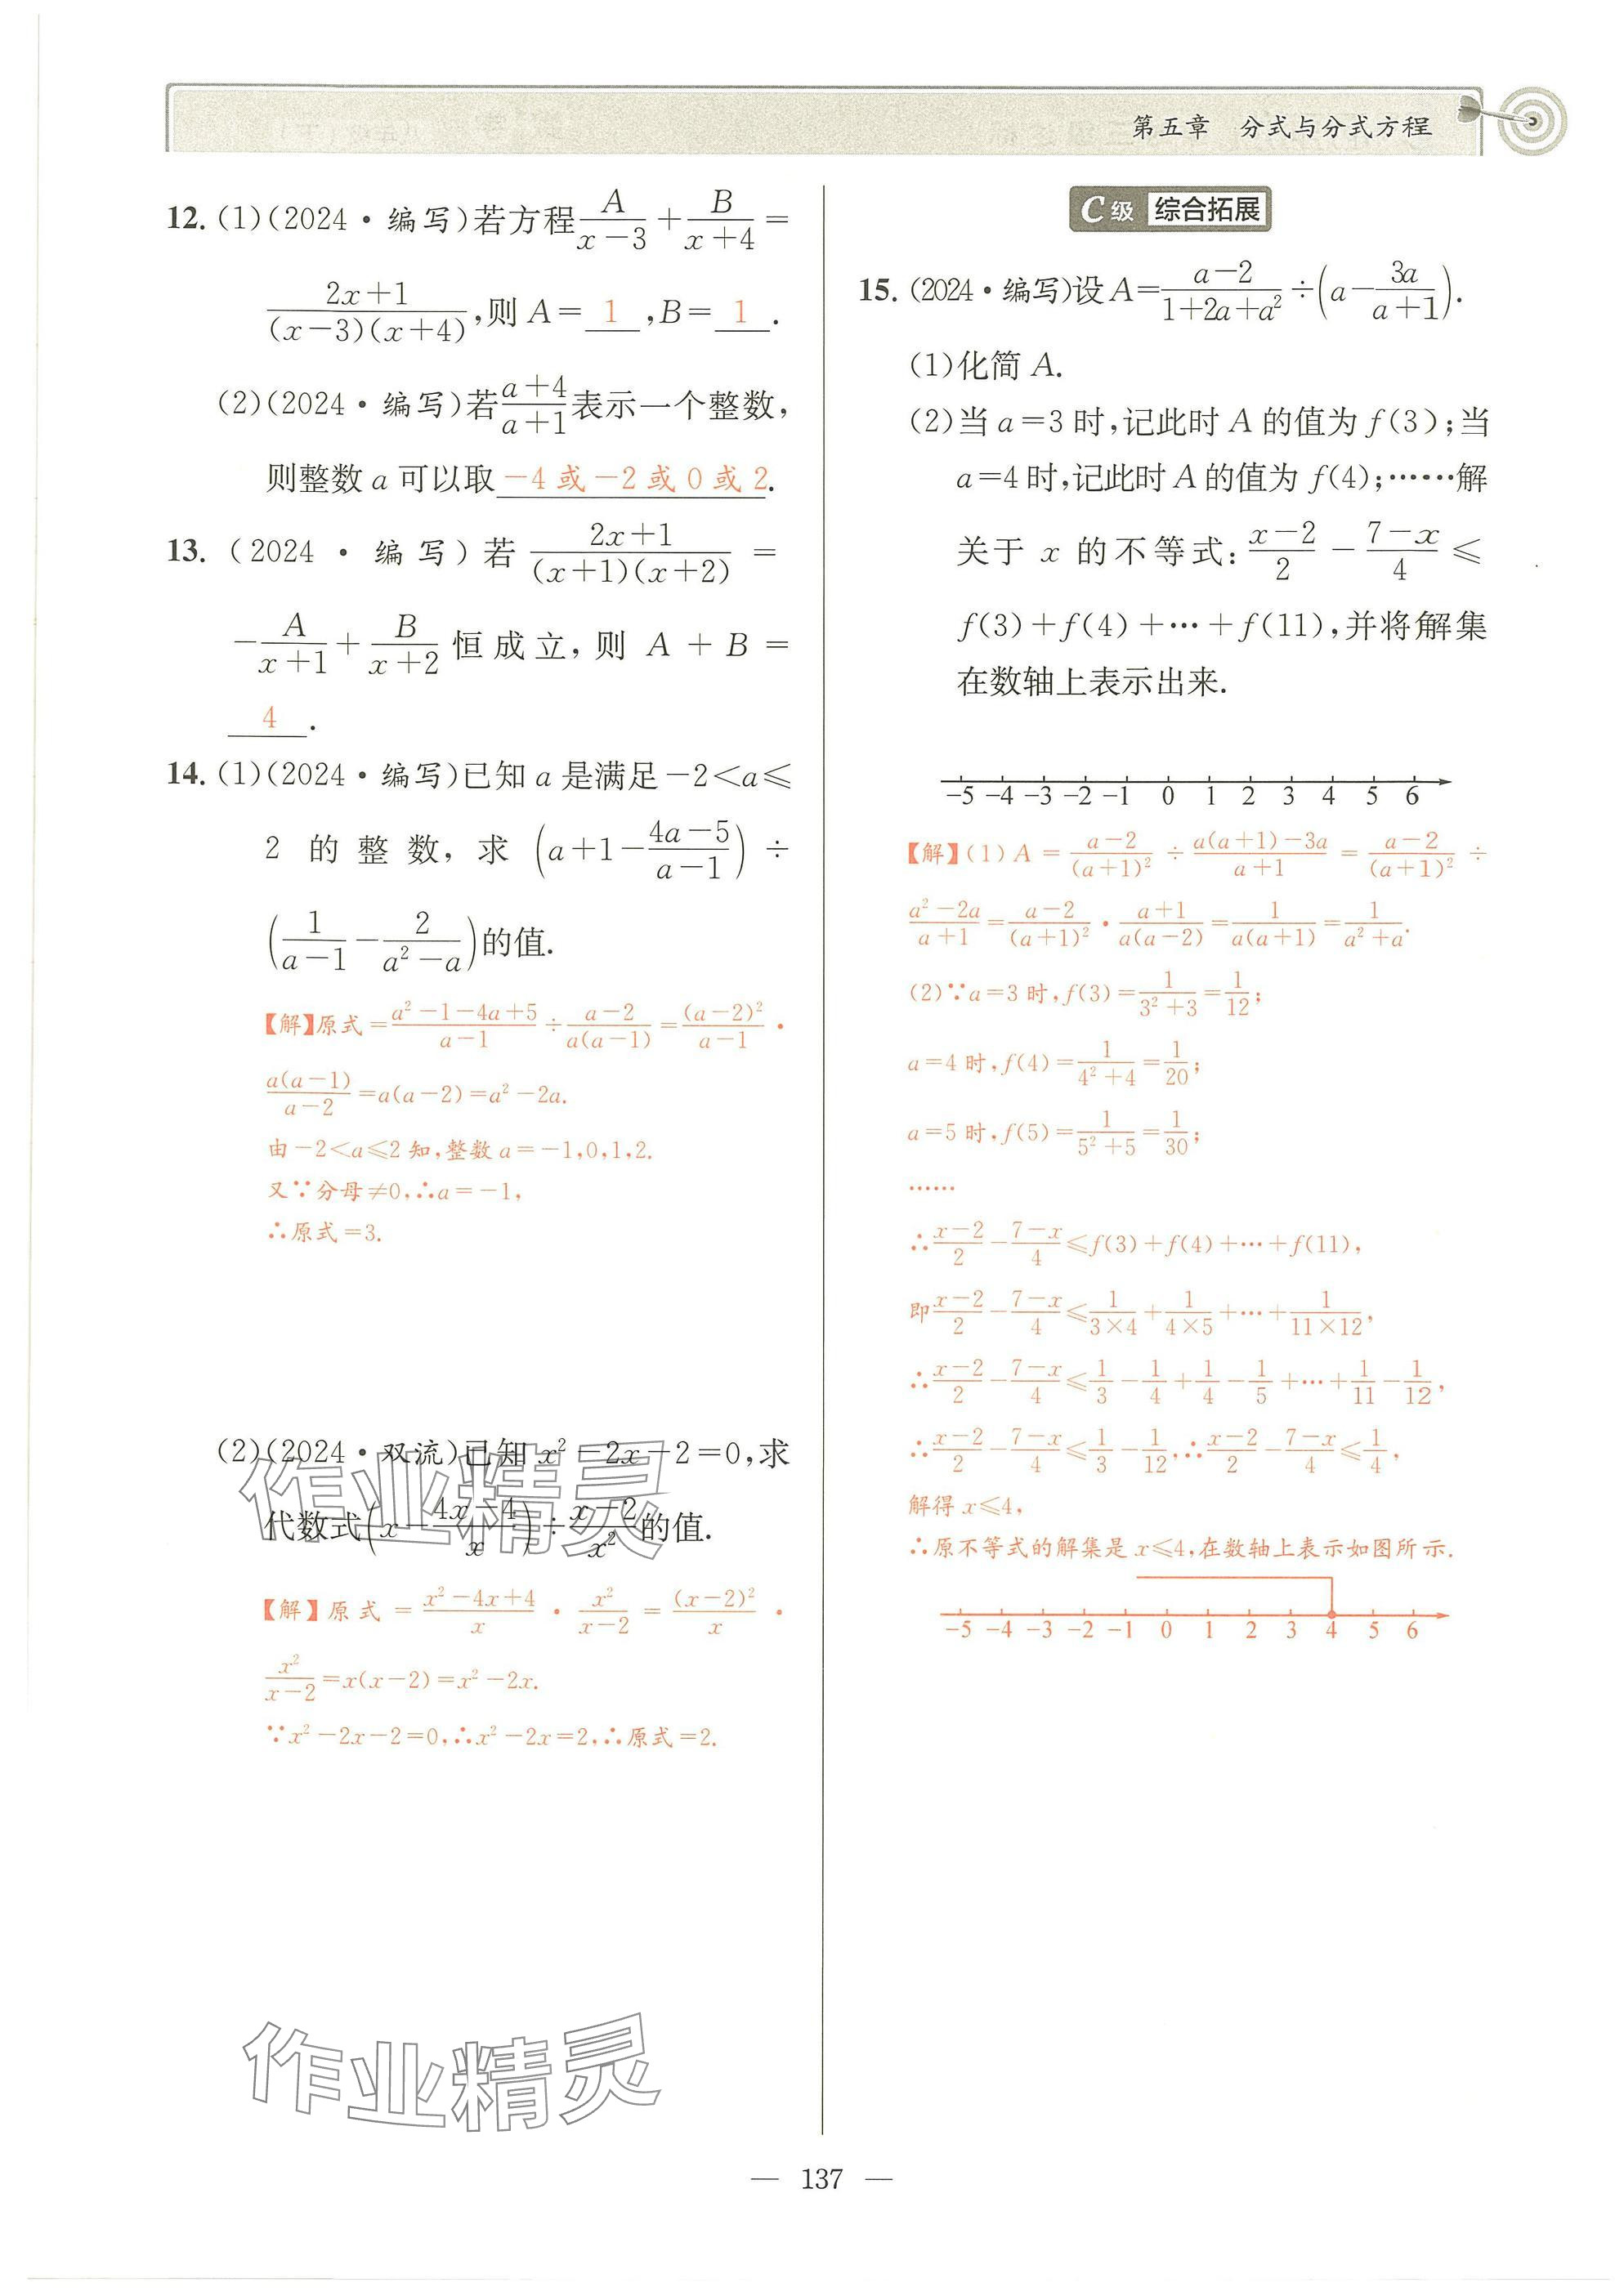 第五章 分式与分式方程
12. (1)(2024·编写)若方程\frac{A}{x-3}+\frac{B}{x+4}=
\frac{2x+1}{(x-3)(x+4)},则A=1,B=1.
(2)(2024·编写)若\frac{a+4}{a+1}表示一个整数,
则整数a可以取-4或-2或0或2.
13. (2024·编写)若\frac{2x+1}{(x+1)(x+2)}=
-\frac{A}{x+1}+\frac{B}{x+2}恒成立,则A+B=
4.
14. (1)(2024·编写)已知a是满足-2<a≤
2的整数,求(a+1-\frac{4a-5}{a-1})÷
(\frac{1}{a-1}-\frac{2}{a²-a})的值.
【解】原式=\frac{a²-1-4a+5}{a-1}÷\frac{a-2}{a(a-1)}=\frac{(a-2)²}{a-1}·
\frac{a(a-1)}{a-2}=a(a-2)=a²-2a.
由-2<a≤2知,整数a=-1,0,1,2.
又∵分母≠0,∴a=-1,
∴原式=3.
(2)(2024·双流)已知x²-2x-2=0,求
代数式(x-\frac{4x-4}{x})÷\frac{x-2}{x²}的值.
【解】原式=\frac{x²-4x+4}{x}·\frac{x²}{x-2}=\frac{(x-2)²}{x}·
\frac{x²}{x-2}=x(x-2)=x²-2x.
∵x²-2x-2=0,∴x²-2x=2,∴原式=2.
C级 综合拓展
15. (2024·编写)设A=\frac{a-2}{1+2a+a²}÷(a-\frac{3a}{a+1}).
(1)化简A.
(2)当a=3时,记此时A的值为f(3);当
a=4时,记此时A的值为f(4);……解
关于x的不等式:\frac{x-2}{2}-\frac{7-x}{4}≤
f(3)+f(4)+…+f(11),并将解集
在数轴上表示出来.
-5 -4 -3 -2 -1 0 1 2 3 4 5 6
【解】(1)A=\frac{a-2}{(a+1)²}÷\frac{a(a+1)-3a}{a+1}=\frac{a-2}{(a+1)²}÷
\frac{a²-2a}{a+1}=\frac{a-2}{(a+1)²}·\frac{a+1}{a(a-2)}=\frac{1}{a(a+1)}=\frac{1}{a²+a}.
(2)∵a=3时,f(3)=\frac{1}{3²+3}=\frac{1}{12};
a=4时,f(4)=\frac{1}{4²+4}=\frac{1}{20};
a=5时,f(5)=\frac{1}{5²+5}=\frac{1}{30};
……
∴\frac{x-2}{2}-\frac{7-x}{4}≤f(3)+f(4)+…+f(11),
即\frac{x-2}{2}-\frac{7-x}{4}≤\frac{1}{3×4}+\frac{1}{4×5}+…+\frac{1}{11×12},
∴\frac{x-2}{2}-\frac{7-x}{4}≤\frac{1}{3}-\frac{1}{4}+\frac{1}{4}-\frac{1}{5}+…+\frac{1}{11}-\frac{1}{12},
∴\frac{x-2}{2}-\frac{7-x}{4}≤\frac{1}{3}-\frac{1}{12},∴\frac{x-2}{2}-\frac{7-x}{4}≤\frac{1}{4},
解得x≤4,
∴原不等式的解集是x≤4,在数轴上表示如图所示.
-5 -4 -3 -2 -1 0 1 2 3 4 5 6
作业精灵
作业精灵
— 137 —